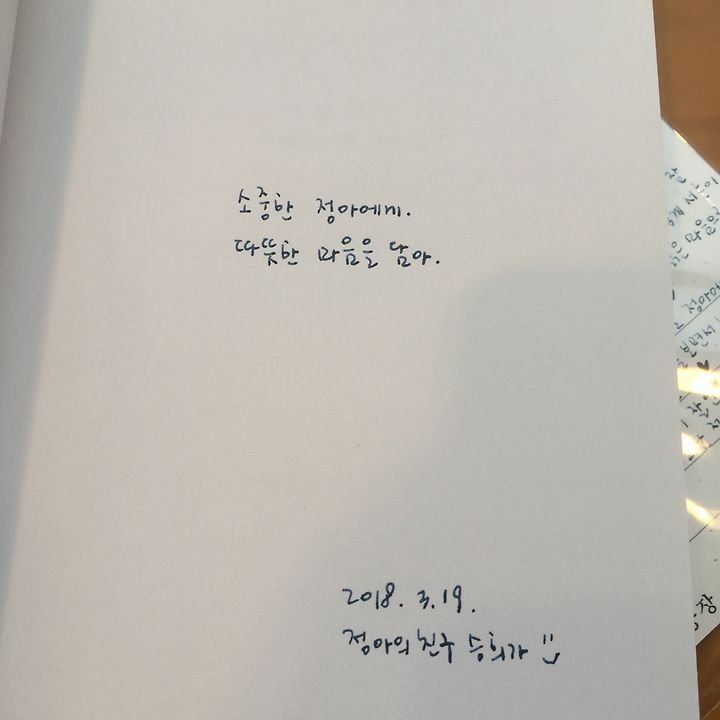 소중한 정아에게.
따뜻한 마음을 담아.
2018. 3. 19.
정아의 친구 승희가